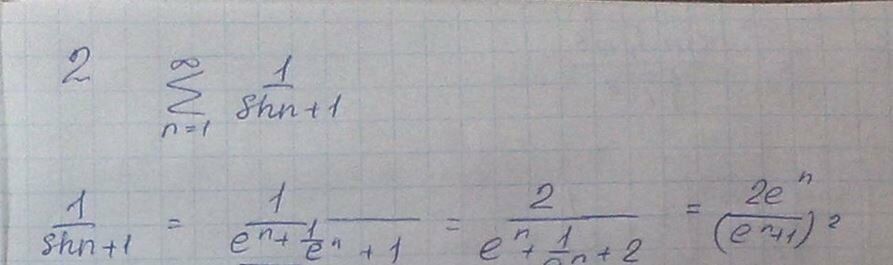 2 ∞∑n=1 1/(shn+1)
1/(shn+1) = 1/(e^n + 1/e^n + 1) = 2/(e^n + 1/e^n + 2) = 2e^n/(e^n+1)^2